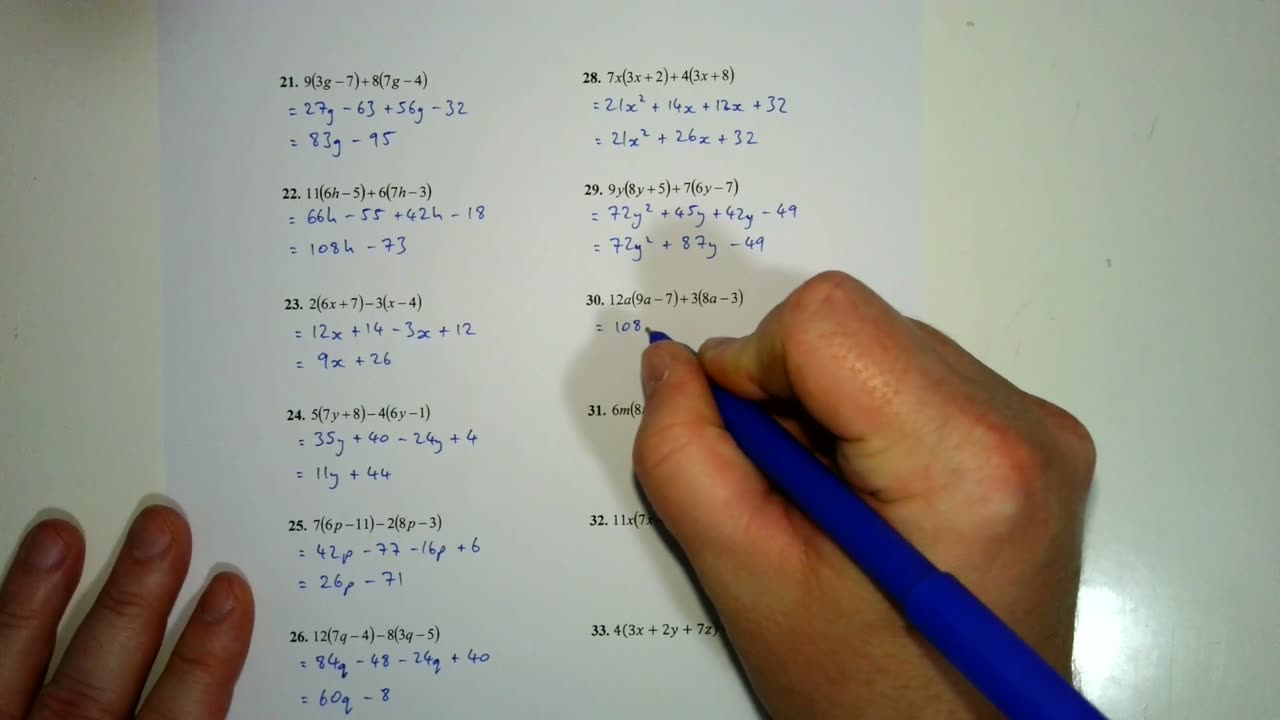 21. 9(3g − 7) + 8(7g − 4)
= 27g − 63 + 56g − 32
= 83g − 95
22. 11(6h − 5) + 6(7h − 3)
= 66h − 55 + 42h − 18
= 108h − 73
23. 2(6x + 7) − 3(x − 4)
= 12x + 14 − 3x + 12
= 9x + 26
24. 5(7y + 8) − 4(6y − 1)
= 35y + 40 − 24y + 4
= 11y + 44
25. 7(6p − 11) − 2(8p − 3)
= 42p − 77 − 16p + 6
= 26p − 71
26. 12(7q − 4) − 8(3q − 5)
= 84q − 48 − 24q + 40
= 60q − 8
28. 7x(3x + 2) + 4(3x + 8)
= 21x² + 14x + 12x + 32
= 21x² + 26x + 32
29. 9y(8y + 5) + 7(6y − 7)
= 72y² + 45y + 42y − 49
= 72y² + 87y − 49
30. 12a(9a − 7) + 3(8a − 3)
= 108
31. 6m(8
32. 11x(7x
33. 4(3x + 2y + 7z)